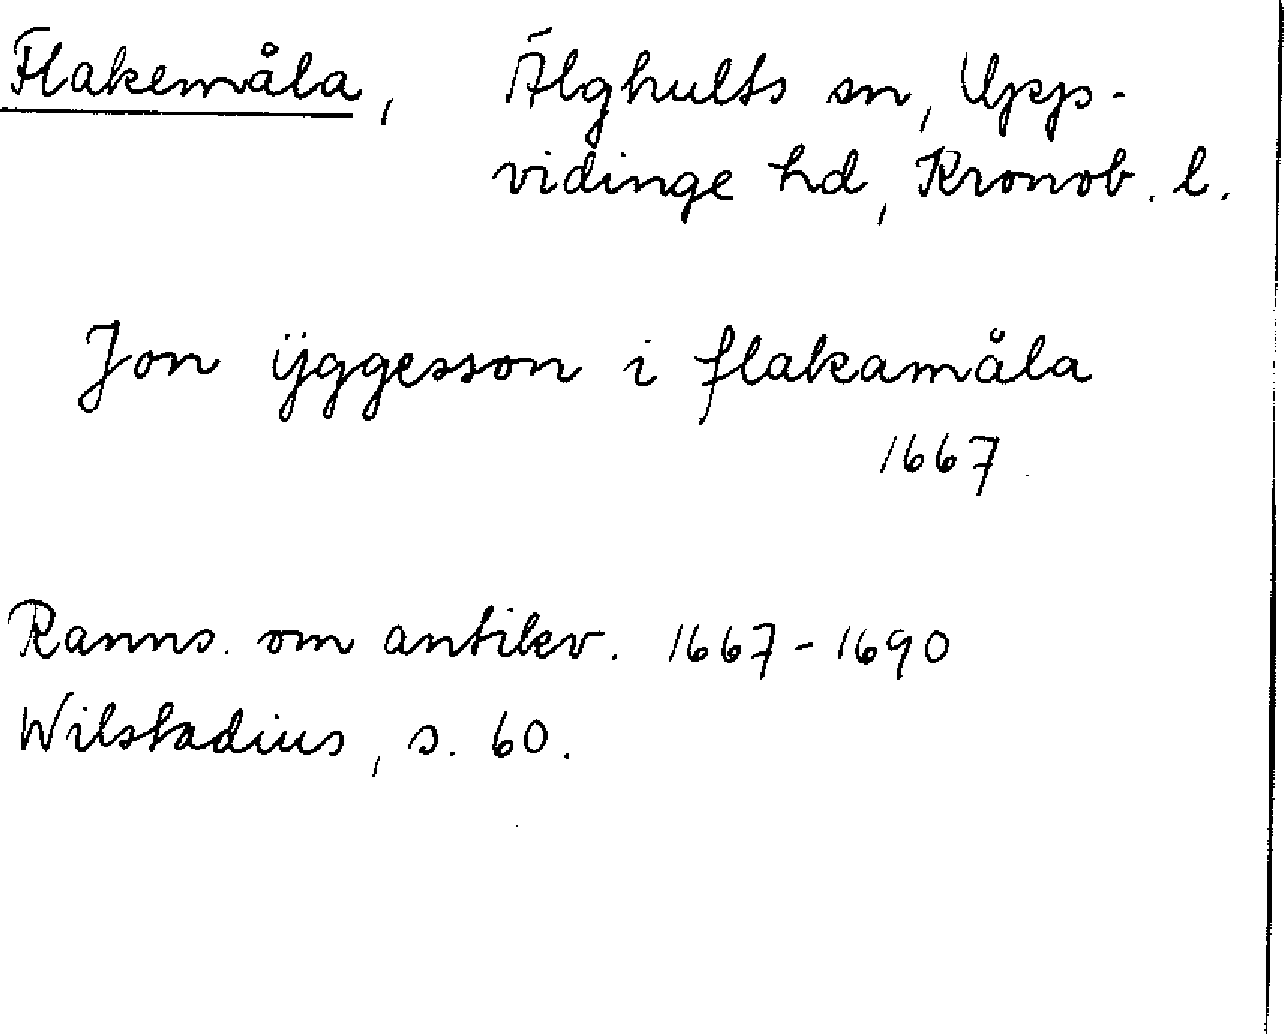 Flakemåla, Älghults sn, Upp-
vidinge hd, Kronob. l.
Jon ÿggesson i flakamåla
1667
Ranns. om antikv. 1667-1690
Wilstadius, s. 60.